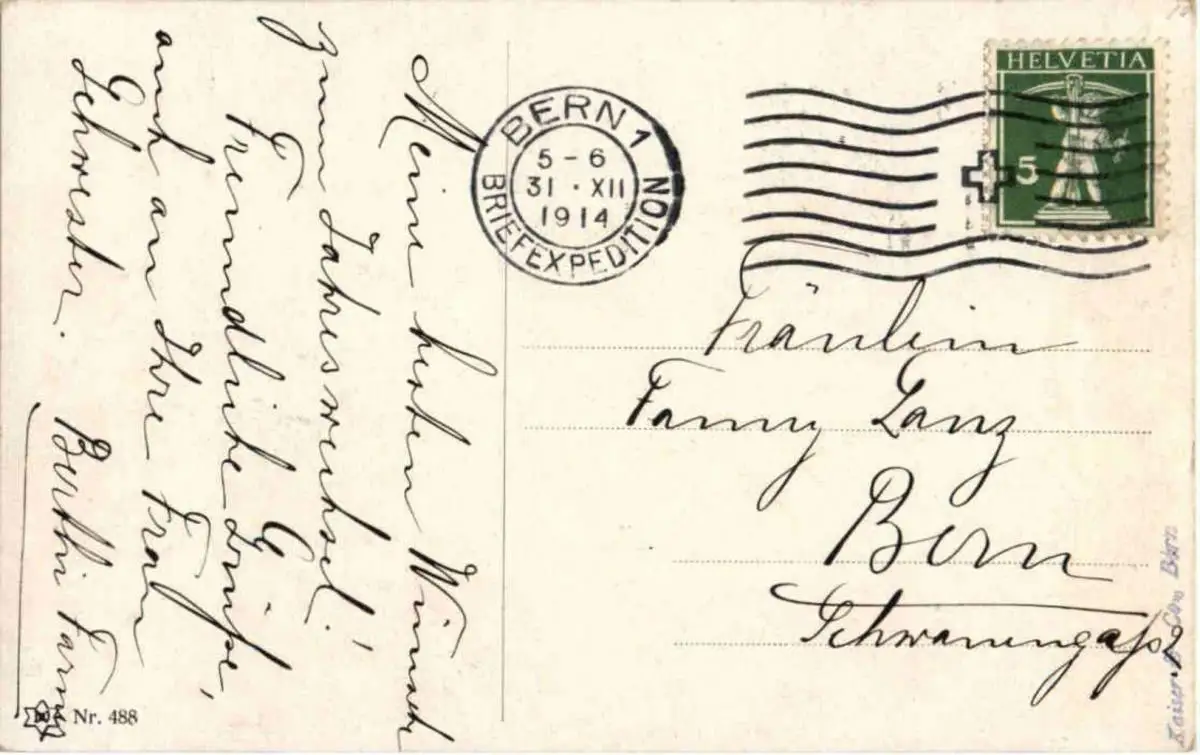 Meine besten Wünsche
zum Jahreswechsel!
Freundliche Grüße,
auch an Ihre Frau
Schwester.
Berthi
Nr. 488
BERN 1
5-6
31·XII
1914
BRIEFEXPEDITION
HELVETIA
5
Fräulein
Fanny Lanz
Bern
Schwanengaß
Kaiser & Co., Bern